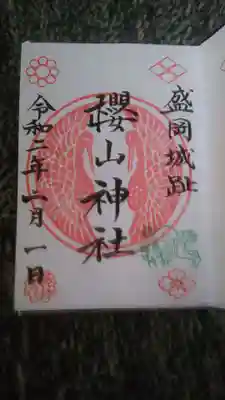 盛岡城趾
櫻山神社
令和二年一月一日